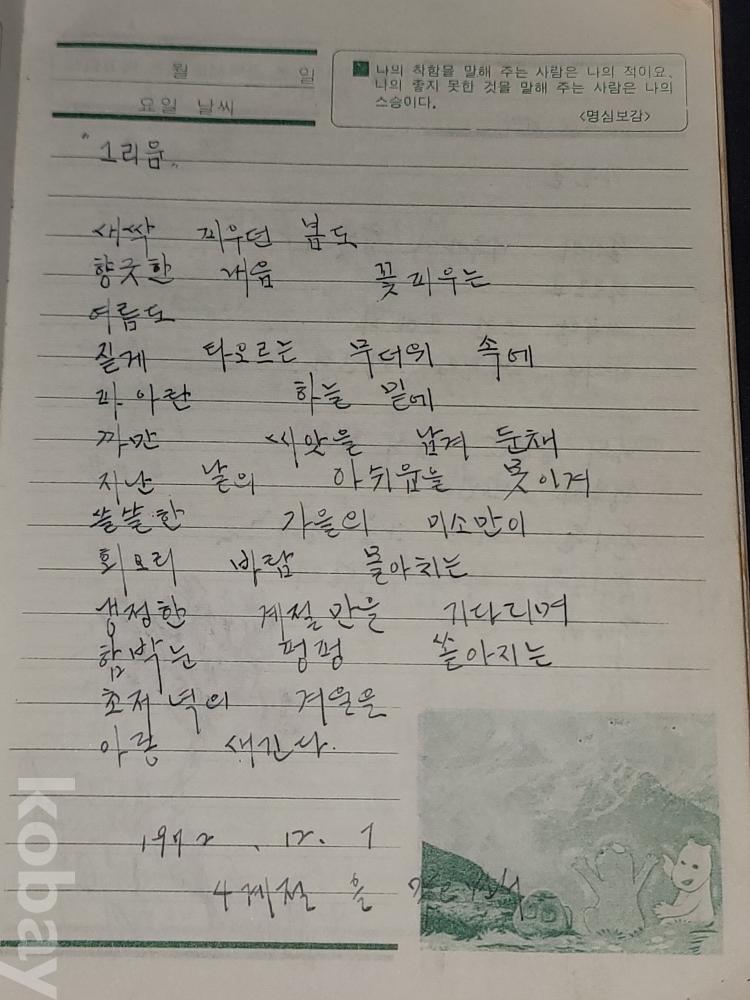 월 일
요일 날씨
나의 착함을 말해 주는 사람은 나의 적이요,
나의 좋지 못한 것을 말해 주는 사람은 나의
스승이다.
<명심보감>
"그리움"
새싹 피우던 봄도
향긋한 내음 꽃피우는
여름도
짙게 타오르는 무더위 속에
파아란 하늘 밑에
까만 씨앗을 남겨 둔채
지난 날의 아쉬움을 못이겨
쓸쓸한 가을의 미소만이
회오리 바람 몰아치는
냉정한 계절만을 기다리며
함박눈 펑펑 쏟아지는
초저녁의 겨울을
아로 새긴다.
12. 1
4계절 을
kobay